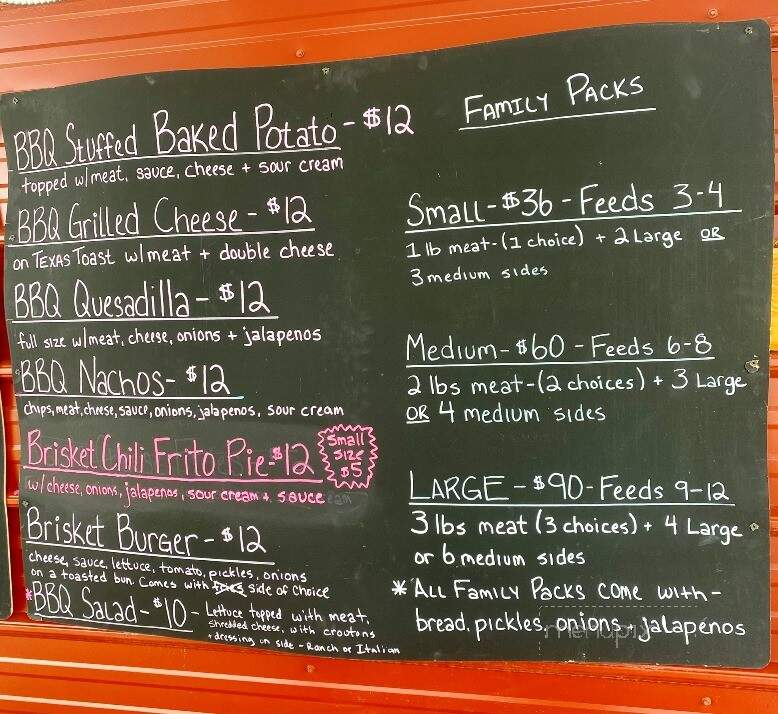 BBQ Stuffed Baked Potato - $12
topped w/meat, sauce, cheese + sour cream
BBQ Grilled Cheese - $12
on TEXAS Toast w/meat + double cheese
BBQ Quesadilla - $12
full size w/meat, cheese, onions + jalapenos
BBQ Nachos - $12
chips, meat, cheese, sauce, onions, jalapenos, sour cream
Brisket Chili Frito Pie - $12
Small
size
$5
w/cheese, onions, jalapenos, sour cream + sauce
Brisket Burger - $12
cheese, sauce, lettuce, tomato, pickles, onions
on a toasted bun. Comes with side of choice
*BBQ Salad - $10 - Lettuce topped with meat,
shredded cheese, with croutons
+ dressing on side - Ranch or Italian
FAMILY PACKS
Small - $36 - Feeds 3-4
1 lb meat - (1 choice) + 2 Large OR
3 medium sides
Medium - $60 - Feeds 6-8
2 lbs meat - (2 choices) + 3 Large
OR 4 medium sides
LARGE - $90 - Feeds 9-12
3 lbs meat (3 choices) + 4 Large
or 6 medium sides
* ALL FAMILY PACKS COME WITH -
bread, pickles, onions + jalapenos